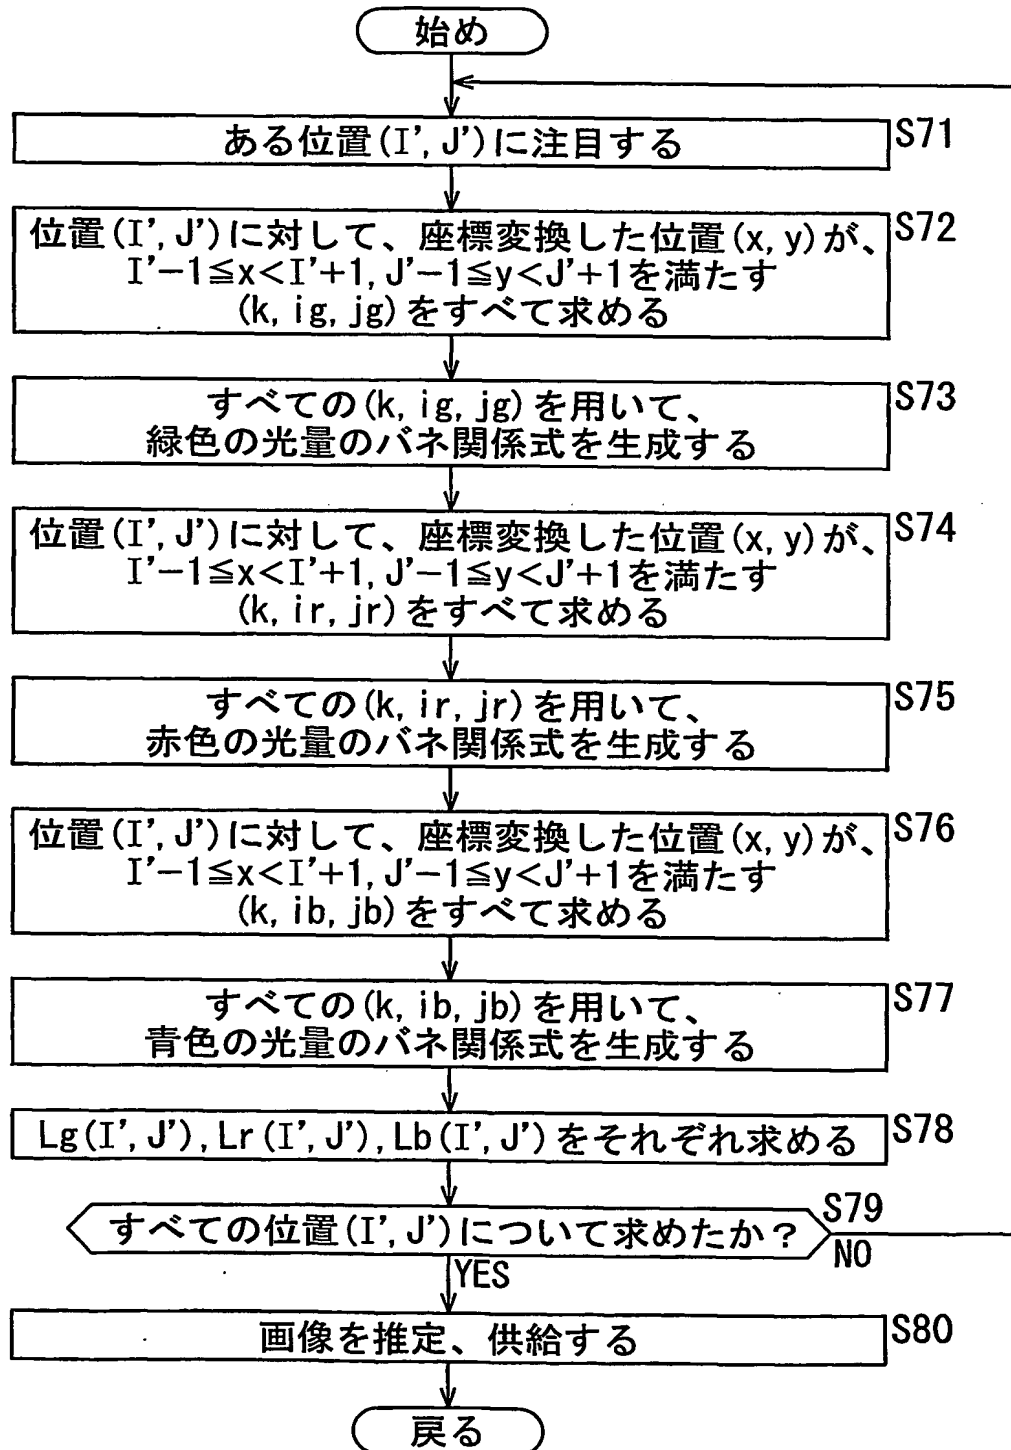 始め
ある位置(I',J')に注目する
S71
位置(I',J')に対して、座標変換した位置(x,y)が、
I'-1≦x<I'+1,J'-1≦y<J'+1を満たす
(k,ig,jg)をすべて求める
S72
すべての(k,ig,jg)を用いて、
緑色の光量のバネ関係式を生成する
S73
位置(I',J')に対して、座標変換した位置(x,y)が、
I'-1≦x<I'+1,J'-1≦y<J'+1を満たす
(k,ir,jr)をすべて求める
S74
すべての(k,ir,jr)を用いて、
赤色の光量のバネ関係式を生成する
S75
位置(I',J')に対して、座標変換した位置(x,y)が、
I'-1≦x<I'+1,J'-1≦y<J'+1を満たす
(k,ib,jb)をすべて求める
S76
すべての(k,ib,jb)を用いて、
青色の光量のバネ関係式を生成する
S77
Lg(I',J'),Lr(I',J'),Lb(I',J')をそれぞれ求める
S78
すべての位置(I',J')について求めたか?
S79
NO
YES
画像を推定、供給する
S80
戻る